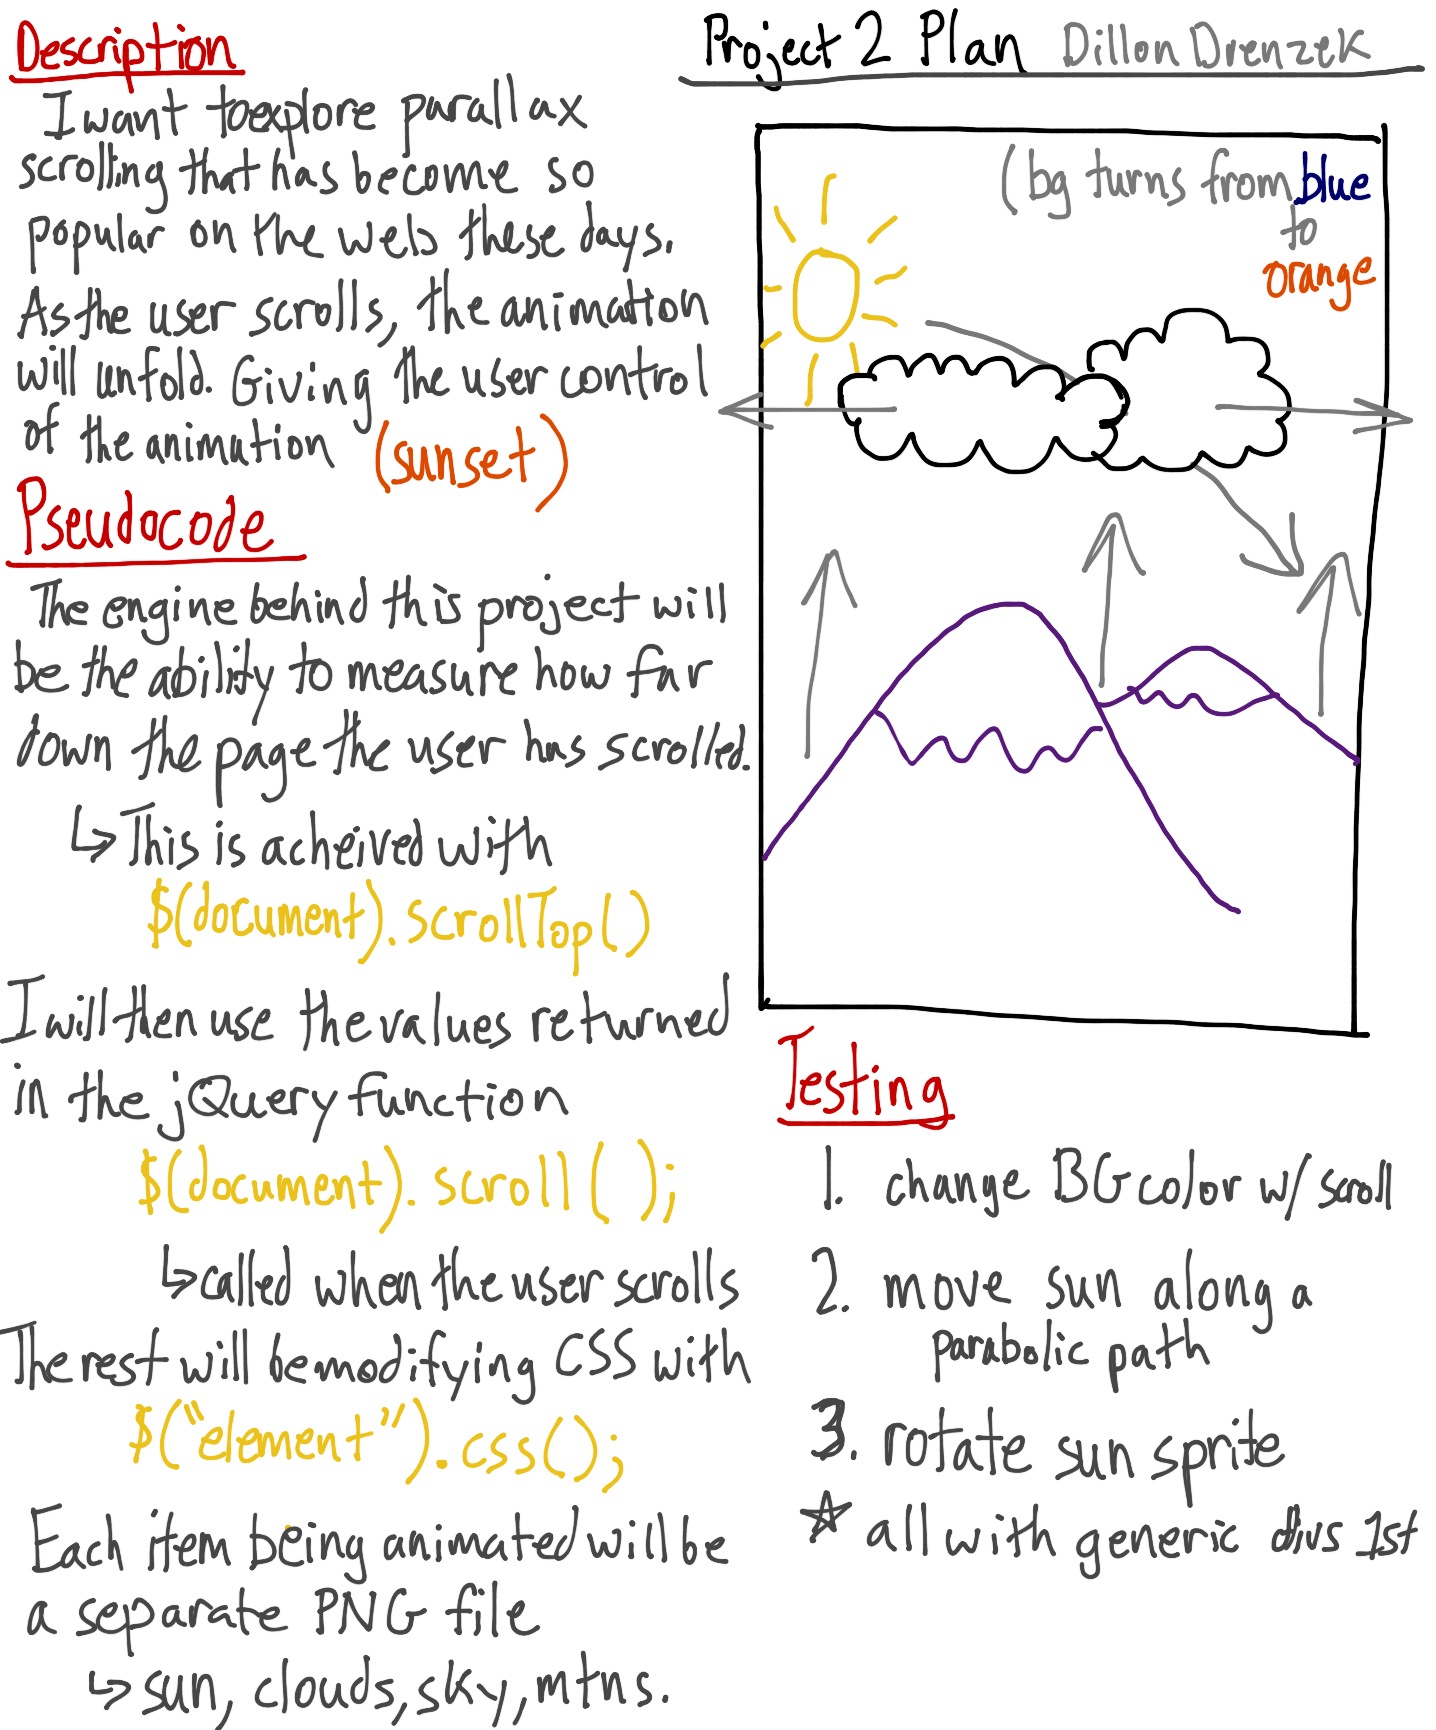 Project 2 Plan Dillon Drenzek
Description
I want to explore parallax
scrolling that has become so
popular on the web these days.
As the user scrolls, the animation
will unfold. Giving the user control
of the animation (sunset)
Pseudocode
The engine behind this project will
be the ability to measure how far
down the page the user has scrolled.
↳ This is acheived with
$(document).scrollTop()
I will then use the values returned
in the jQuery function
$(document).scroll( );
↳ called when the user scrolls
The rest will be modifying CSS with
$("element").css();
Each item being animated will be
a separate PNG file
↳ sun, clouds, sky, mtns.
(bg turns from blue
to
orange
Testing
1. change BG color w/ scroll
2. move sun along a
parabolic path
3. rotate sun sprite
☆ all with generic divs 1st